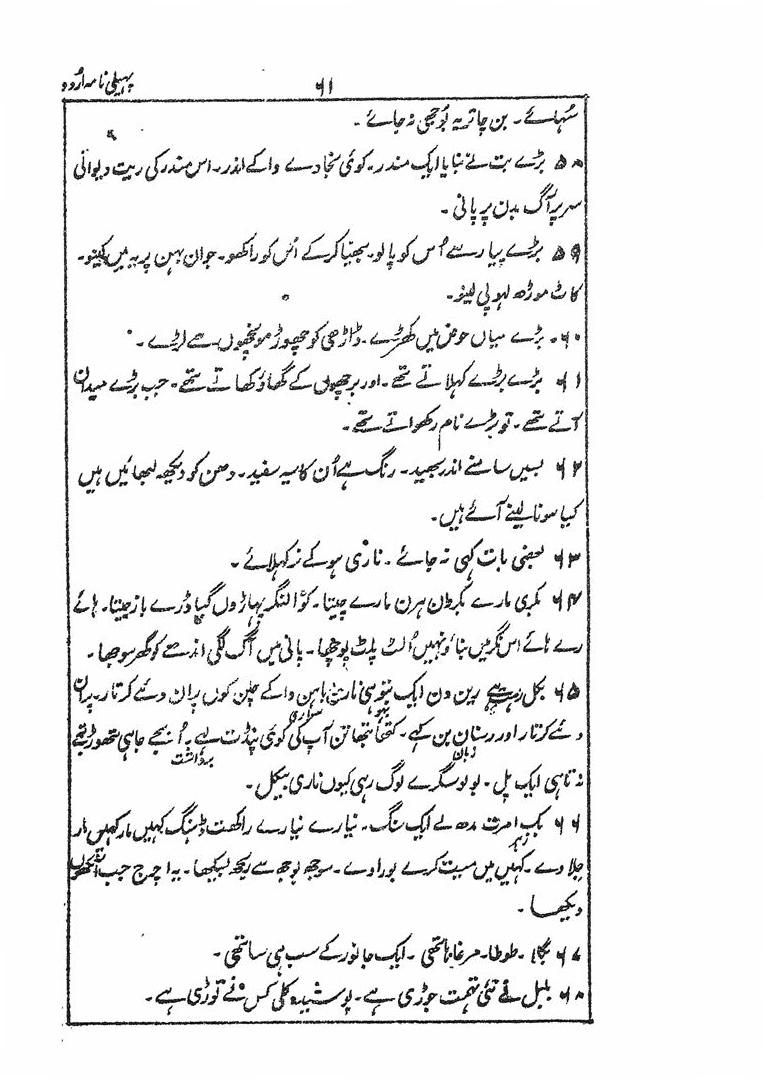 پہیلی نامہ اُردو
۶۱
سُہائے۔ بن چاتر یہ بُوجھی نہ جائے۔
۵۸ بڑے بت نے بنایا ایک مندر۔ کوئی سجا دے واکے اندر۔ اس مندر کی ریت دیوانی
سر پر آگ بدن پر پانی۔
۵۹ بڑے پیار سے اُس کو پالو۔ بھنیا کرکے اُس کو راکھو۔ جوان بہن پر یہ میں کینو۔
کاٹ موڑھ لہو پی لینو۔
۶۰۔ بڑے میاں حوض میں کھڑے۔ ڈاڑھی کو چھوڑ مونچھوں سے لڑے۔
۶۱ بڑے بڑے کہلاتے تھے۔ اور برچھوں کے گھاؤ کھاتے تھے۔ جب بڑے میدان
آتے تھے۔ تو بڑے نام رکھواتے تھے۔
۶۲ بسیں سامنے اندر بھید۔ رنگ ہے اُن کا سیہ سفید۔ دھن کو دیکھ لبھائیں ہیں
کیا سونا لینے آئے ہیں۔
۶۳ بعضی بات کہی نہ جائے۔ ناری ہو کے نر کہلائے۔
۶۴ بکری مارے بکرڈن ہرن مارے چیتا۔ کوّا لنگر پہاڑوں گیا ڈرے باز جیتا۔ ہائے
رے ہائے اس نگر میں بناؤ نہیں اُلٹ پلٹ پوچھا۔ پانی میں آگ لگی اندھے کو گھر سوجھا۔
۶۵ بکل رہے رین دن ایک ناری باہن واکے چن کوں پران دئے کرتار۔ پران
دئے کرتار اور رسنان بن کہے۔ کتھا تن آپ کی کوئی پنڈت لہے۔ اُپجے جاہی تھوڑتے
زبان برداشت
نہ تاہی ایک پل۔ بولو سگرے لوگ رہی کیوں ناری بیکل۔
۶۶ بکہ امرت مدھ لے ایک سنگ۔ نیارے نیارے راکھت ڈہنگ کہیں مار کہیں مار
زہر
جلاوے۔ کہیں میں میت کرے بوراوے۔ سوجھ بوجھ سے یکھ لیکھا۔ یہ اچرج جب آنکھوں
دیکھا۔
۶۷ بگلا۔ طوطا۔ مرغا ہاتھی۔ ایک جانور کے سب ہی ساتھی۔
۶۸ بلبل نے نئی تہمت جوڑی ہے۔ پوشیدہ کلی کس نے توڑی ہے۔